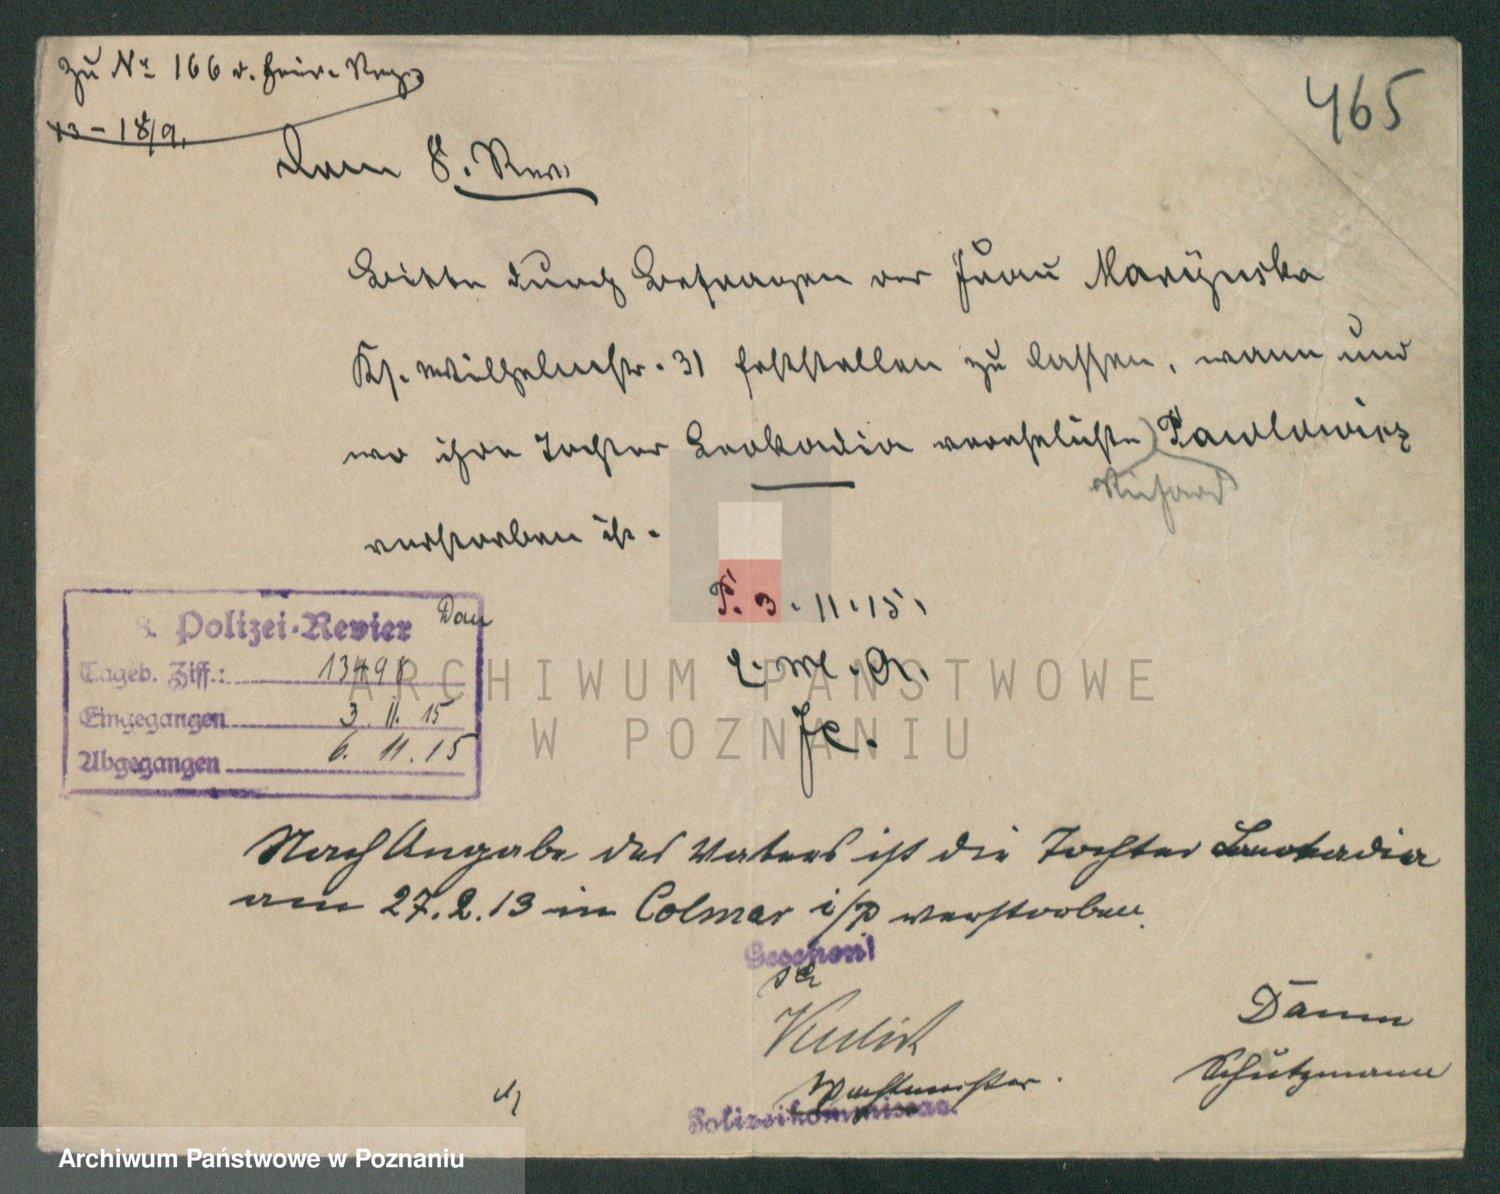 Zu Nr 166 d. Heir. Reg.
13 - 18/9.
465
Dem 8. Rev.
Bitte durch Befragen der Frau Maryjnska
Kj. Wilhelmstr. 31 feststellen zu lassen, wann und
wo ihre Tochter Leokadia verehelichte Pawlowicz
Richard
verstorben ist.
P. 3. 11. 15.
E. M. A.
8. Polizei-Revier
Tageb. Ziff.: 13498
Eingegangen 3. 11. 15
Abgegangen 6. 11. 15
Nach Angabe des Vaters ist die Tochter Leokadia
am 27.2.13 in Colmar i/P verstorben.
Gesehen!
Damm
Schutzmann
Wachtmeister.
Polizeikommissar.
ARCHIWUM PAŃSTWOWE
W POZNANIU
Archiwum Państwowe w Poznaniu